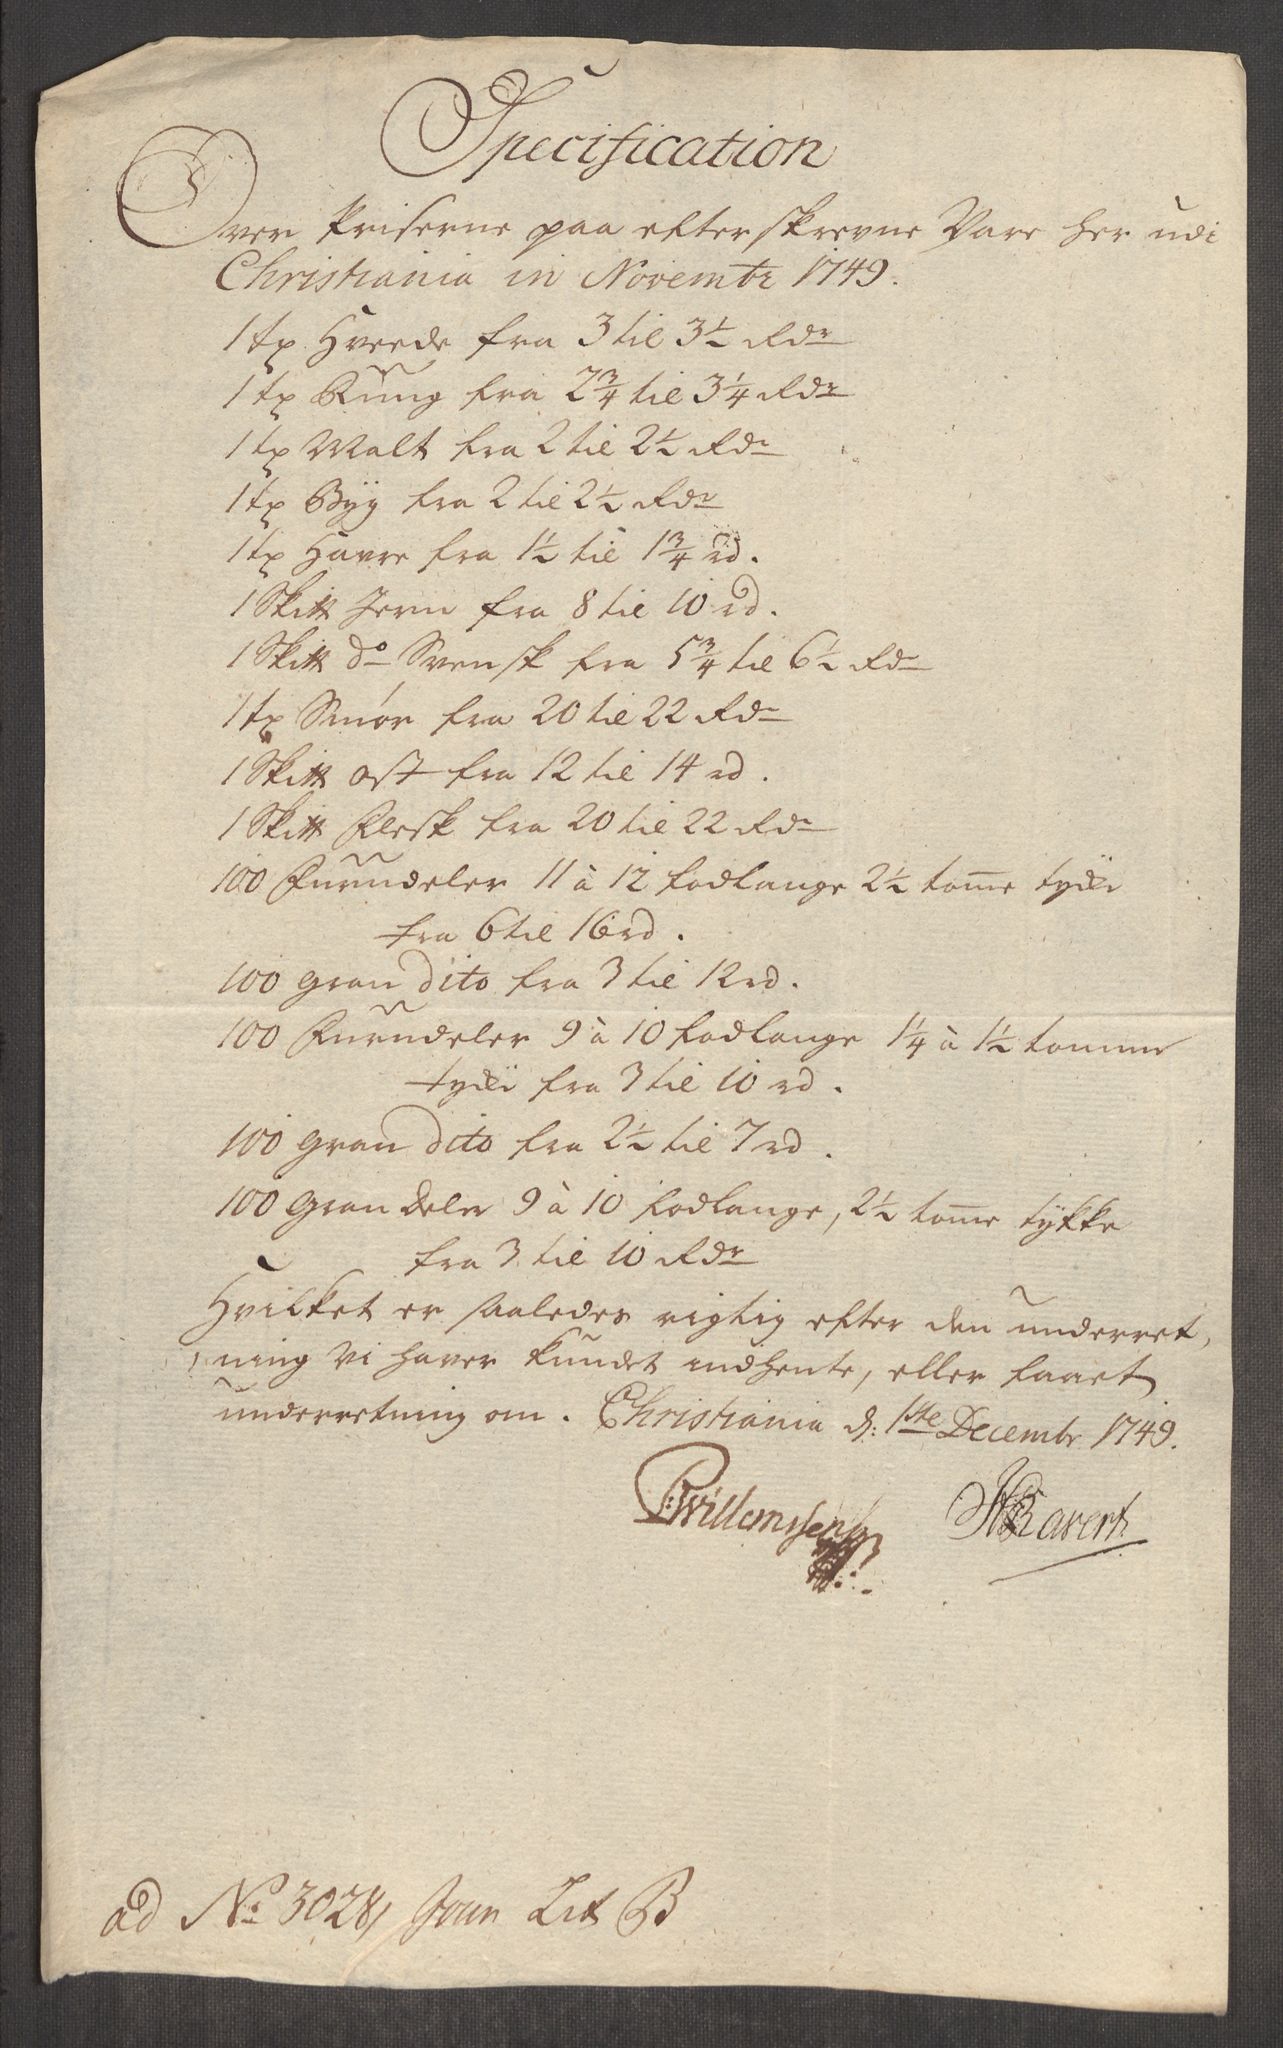 Specification
Over Priserne paa efterskrevne Vare her udi
Christiania in Novembr 1749.
1 tp Hvede fra 3 til 3½ Rdr
1 tp Rung fra 2¾ til 3¼ Rdr
1 tp Malt fra 2 til 2½ Rdr
1 tp Byg fra 2 til 2½ Rdr
1 tp Havre fra 1½ til 1¾ rd.
1 Skitt Jern fra 8 til 10 rd.
1 Skitt do Svensk fra 5¾ til 6½ Rdr
1 tp Smør fra 20 til 22 Rdr
1 Skitt ost fra 12 til 14 rd.
1 Skitt Flesk fra 20 til 22 Rdr
100 Furudeler 11 à 12 fodlange 2½ tome
fra 6 til 16 rd.
100 gran dito fra 3 til 12 rd.
100 Furudeler 9 à 10 fodlange 1¼ à 1½ tomme
fra 3 til 10 rd.
100 gran dito fra 2½ til 7 rd.
100 Gran deler 9 à 10 fodlange, 2½ tome tykke
fra 3 til 10 Rdr
Hvilket er saaledes rigtig efter den underret,
ning vi haver kundet indhente, eller faaet
underretning om. Christiania d: 1ste Decembr 1749.
PWillemssen HRavert
ad No 3028 Joun Lit B